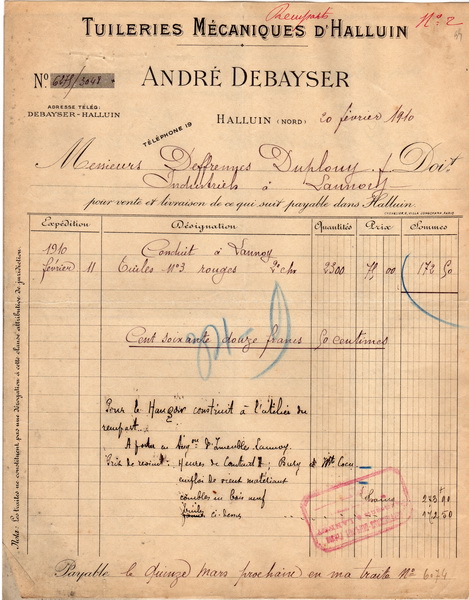 Remparts
No 2
TUILERIES MÉCANIQUES D'HALLUIN
No 6271/3048
ANDRÉ DEBAYSER
ADRESSE TÉLÉG:
DEBAYSER-HALLUIN
TÉLÉPHONE 19
HALLUIN (NORD) 20 février 1910
Messieurs Deffrennes Duplouy f. Doit
Industriels à Lannoy
pour vente et livraison de ce qui suit payable dans Halluin
Expédition Désignation Quantités Prix Sommes
1910 Conduit à Lannoy
février 11 tuiles No 3 rouges 2e chx 2300 75 00 172 50
Cent soixante douze francs 50 centimes
Pour le Hangar construit à l'atelier du
rempart
A porter au d'Immeuble Lannoy.
Prix de revient: Heures de ; Bury & Wte Cocq
emploi de vieux matériaux
combles en bois neuf
tuiles ci-dessus 172.50
Nota: Les traites ne constituent pas une dérogation à cette clause attributive de juridiction
Payable le quinze mars prochain en ma traite No 6074